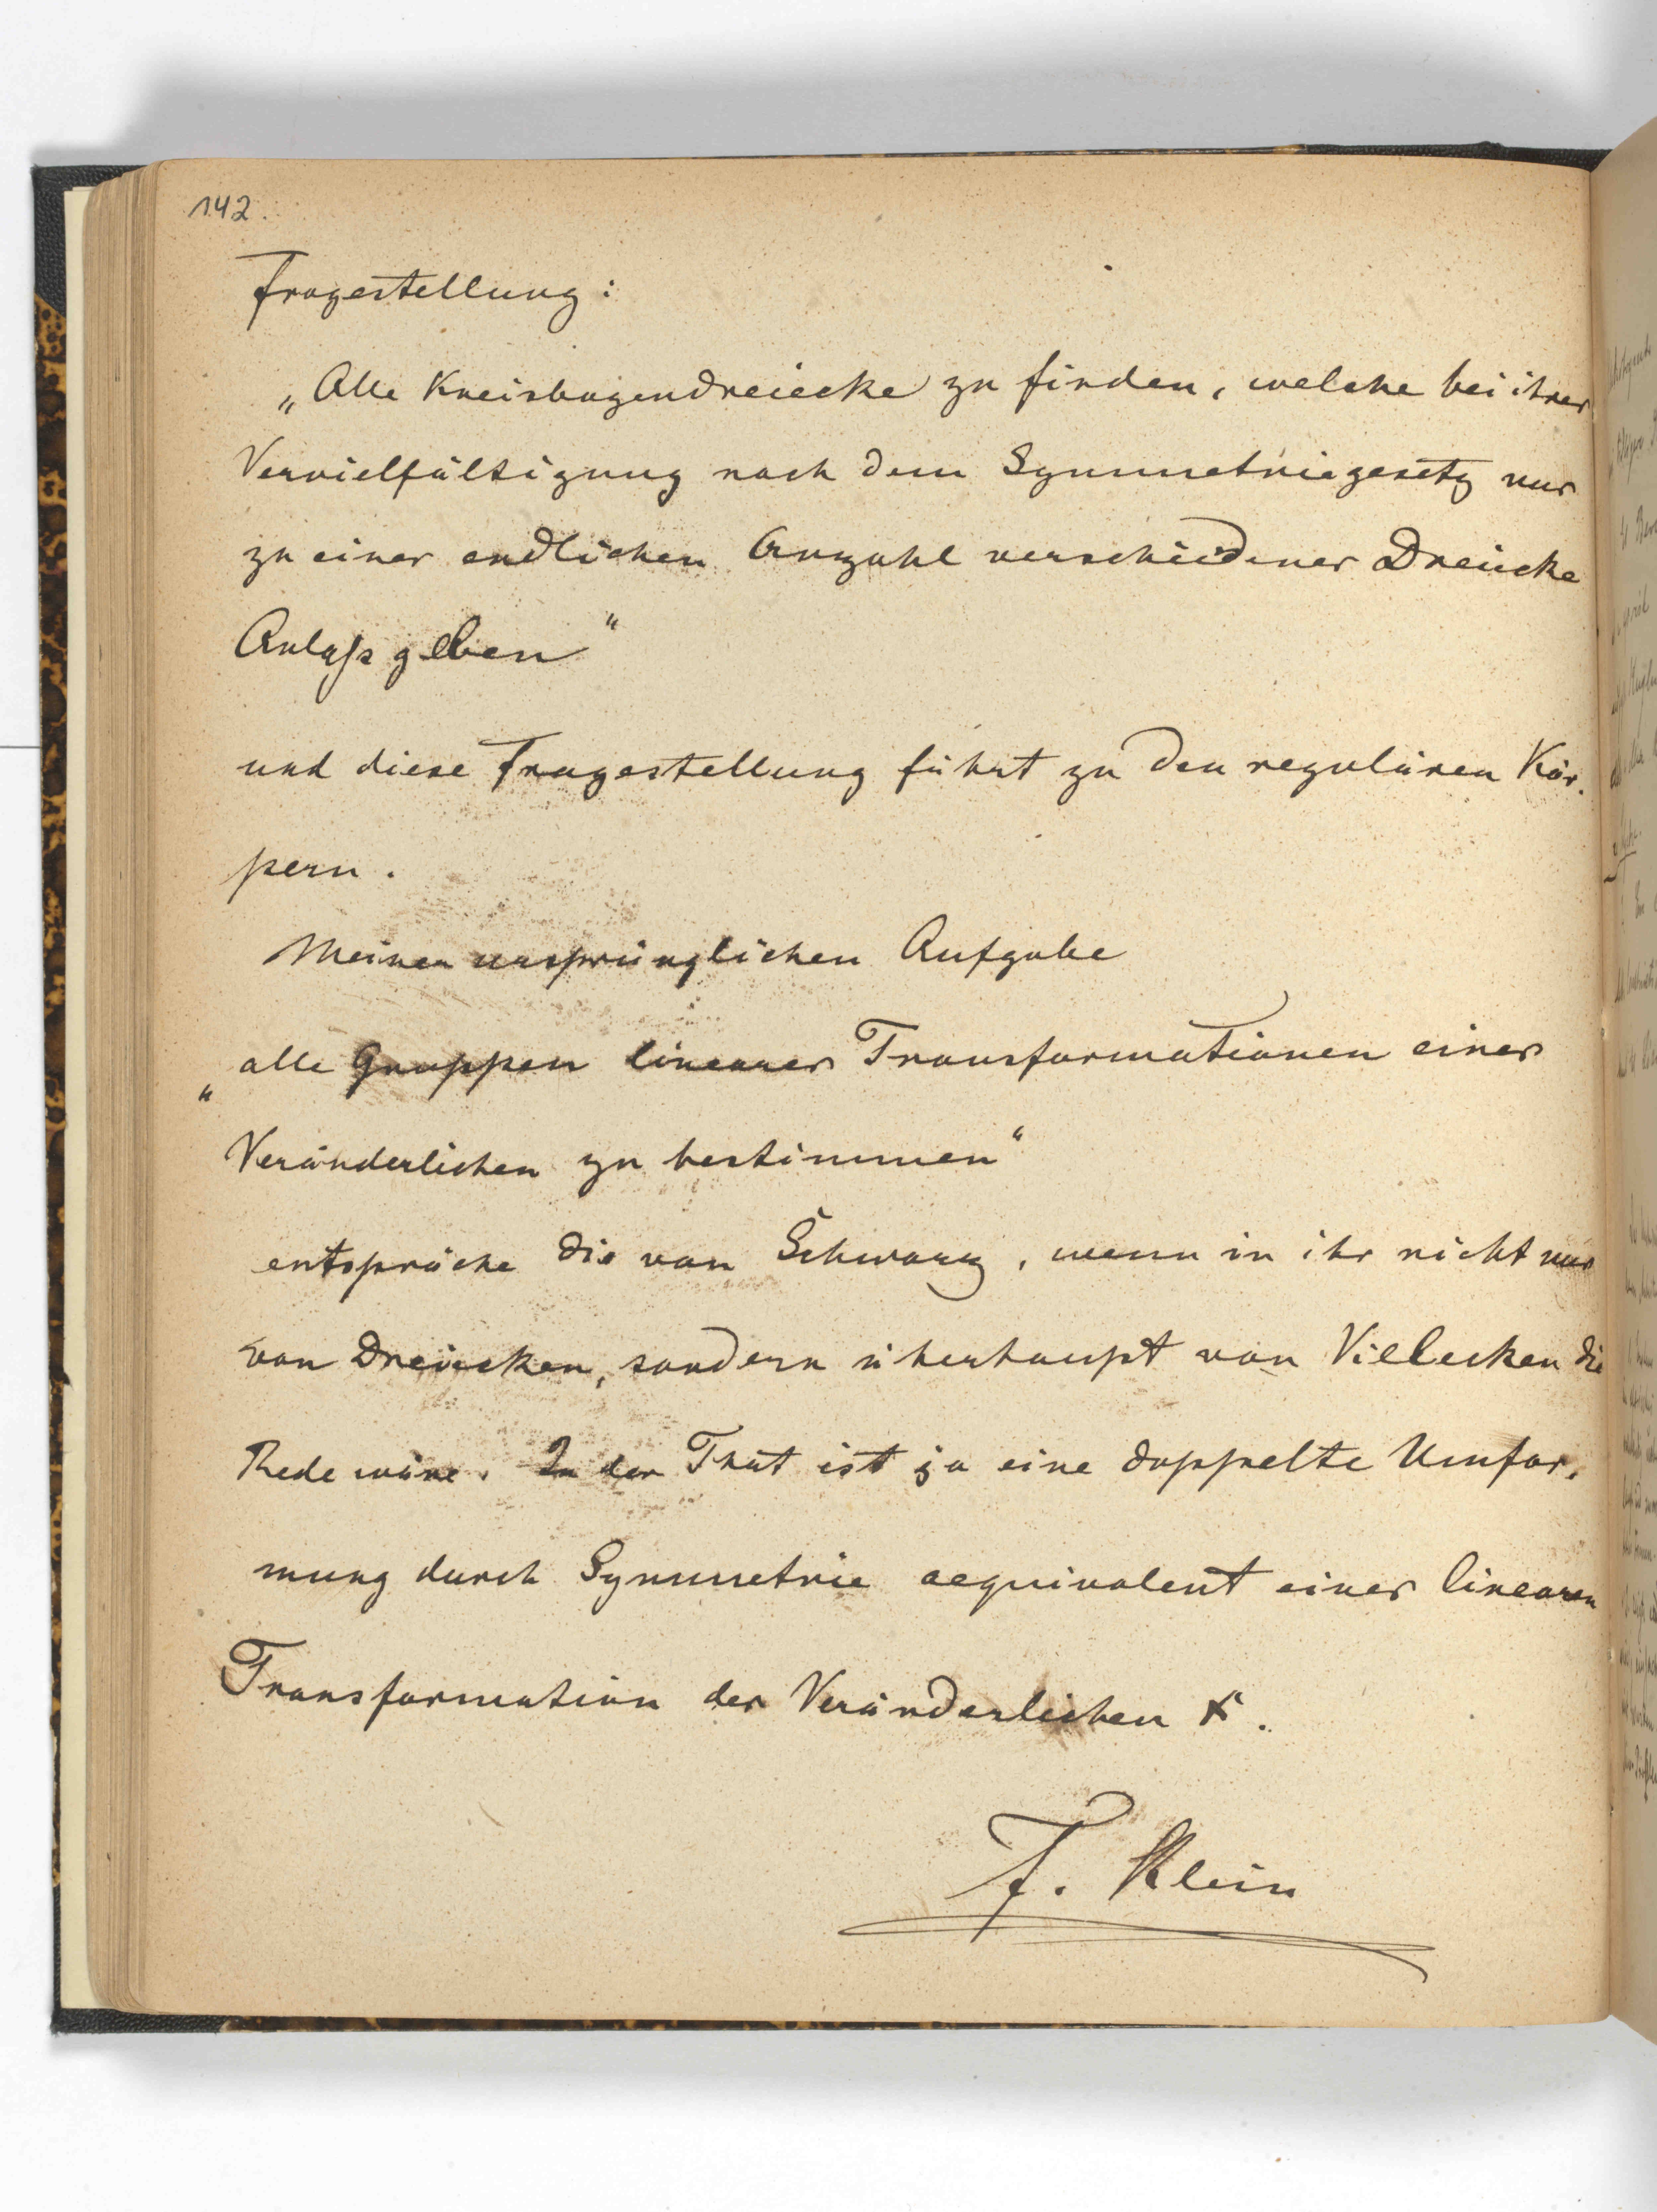 142.
Fragestellung:
„Alle Kreisbogendreiecke zu finden, welche bei ihrer
Vervielfältigung nach dem Symmetriegesetz nur
zu einer endlichen Anzahl verschiedener Dreiecke
Anlaß geben“
und diese Fragestellung führt zu den regulären Kör-
pern.
Meiner ursprünglichen Aufgabe
„alle Gruppen linearer Transformationen einer
Veränderlichen zu bestimmen“
entspräche die von Schwarz, wenn in ihr nicht nur
von Dreiecken, sondern überhaupt von Vielecken die
Rede wäre. In der That ist ja eine doppelte Umfor-
mung durch Symmetrie aequivalent einer linearen
Transformation der Veränderlichen x.
F. Klein